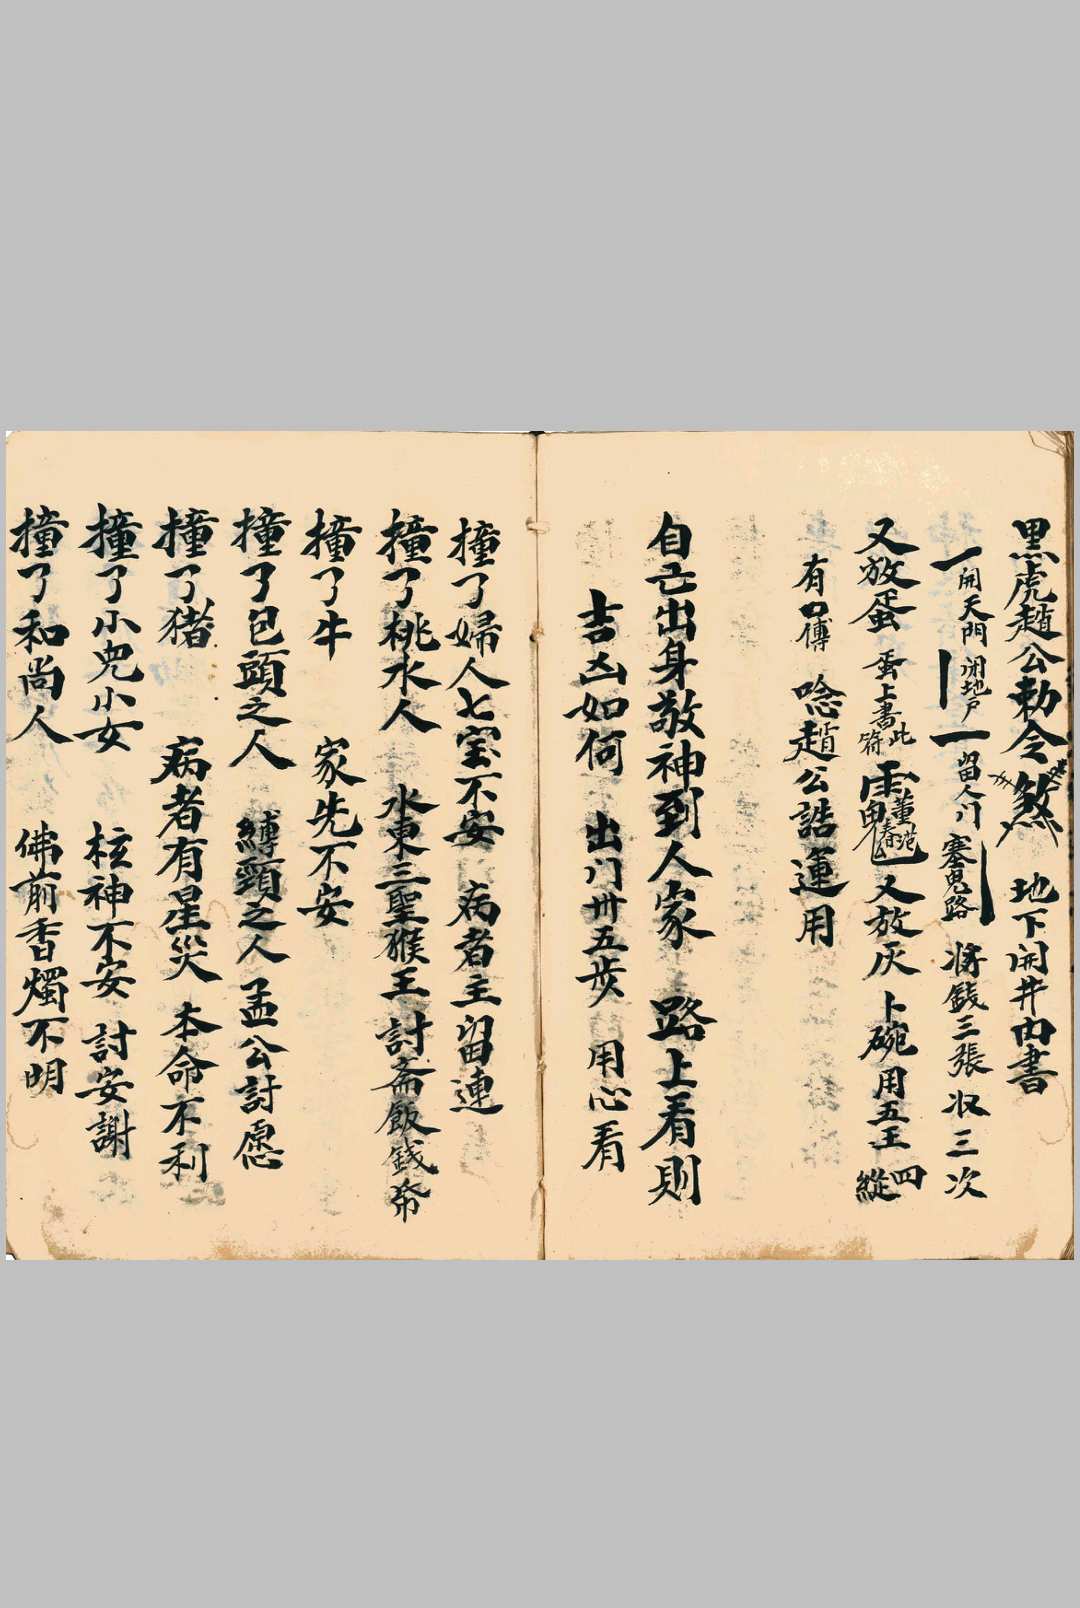 黑虎趙公勅令煞 地下開井內書
開天門 閉地戶 留人门 塞鬼路 將錢三張 收三次
又放蛋 蛋上書此符 又放灰 卜碗用五王 四縱
有口傳 唸趙公誥運用
自亡出身敬神到人家 路上看則
吉凶如何 出门卅五步 用心看
撞了婦人七宝不安 病者主留連
撞了桃水人 水東三聖猴王討斋飯錢帋
撞了牛 家先不安
撞了包頭之人 縛頸之人 孟公討愿
撞了猪 病者有星災 本命不利
撞了小兒小女 核神不安 討安謝
撞了和尚人 佛前香燭不明